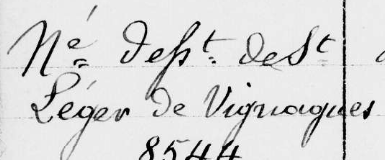 Né deft de St
Léger de Vignagues
8544